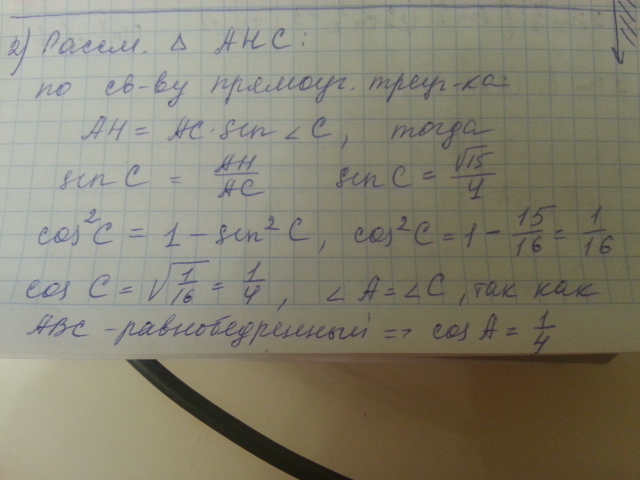 2) Рассм. Δ AHC:
по св-ву прямоуг. треуг-ка:
AH = AC·sin∠C, тогда
sin C = AH/AC sin C = √15/4
cos²C = 1 - sin²C, cos²C = 1 - 15/16 = 1/16
cos C = √1/16 = 1/4, ∠A = ∠C, так как
ABC - равнобедренный => cos A = 1/4